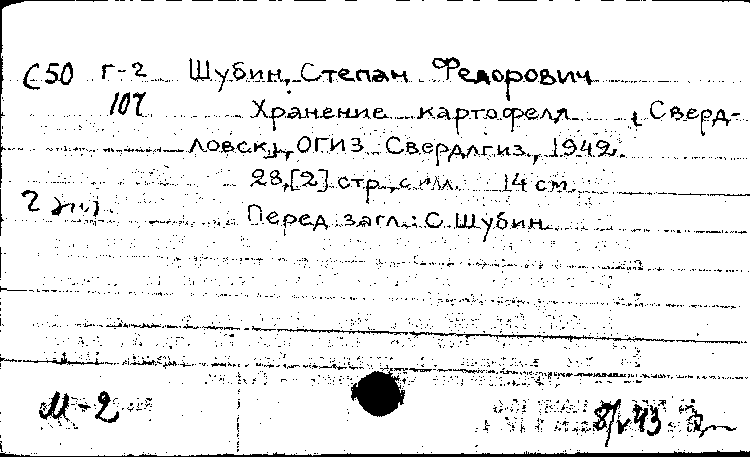 С50 Г-2 Шубин, Степан Федорович
107 Хранение картофеля , Сверд-
ловск, ОГИЗ Свердлгиз, 1942.
28,[2] стр., с илл. 14 см.
2
Перед загл.: С. Шубин
М-2